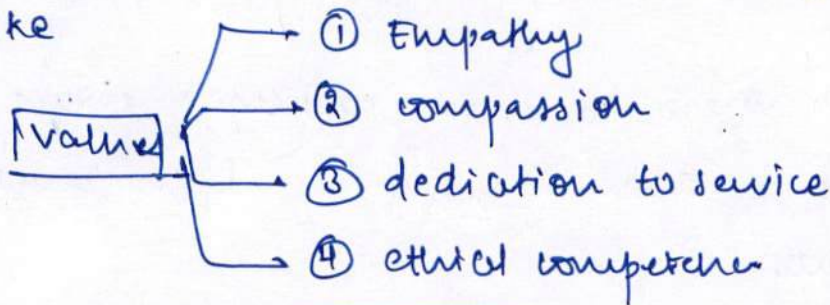 ke
① Empathy
② compassion
values
③ dedication to service
④ ethical competence